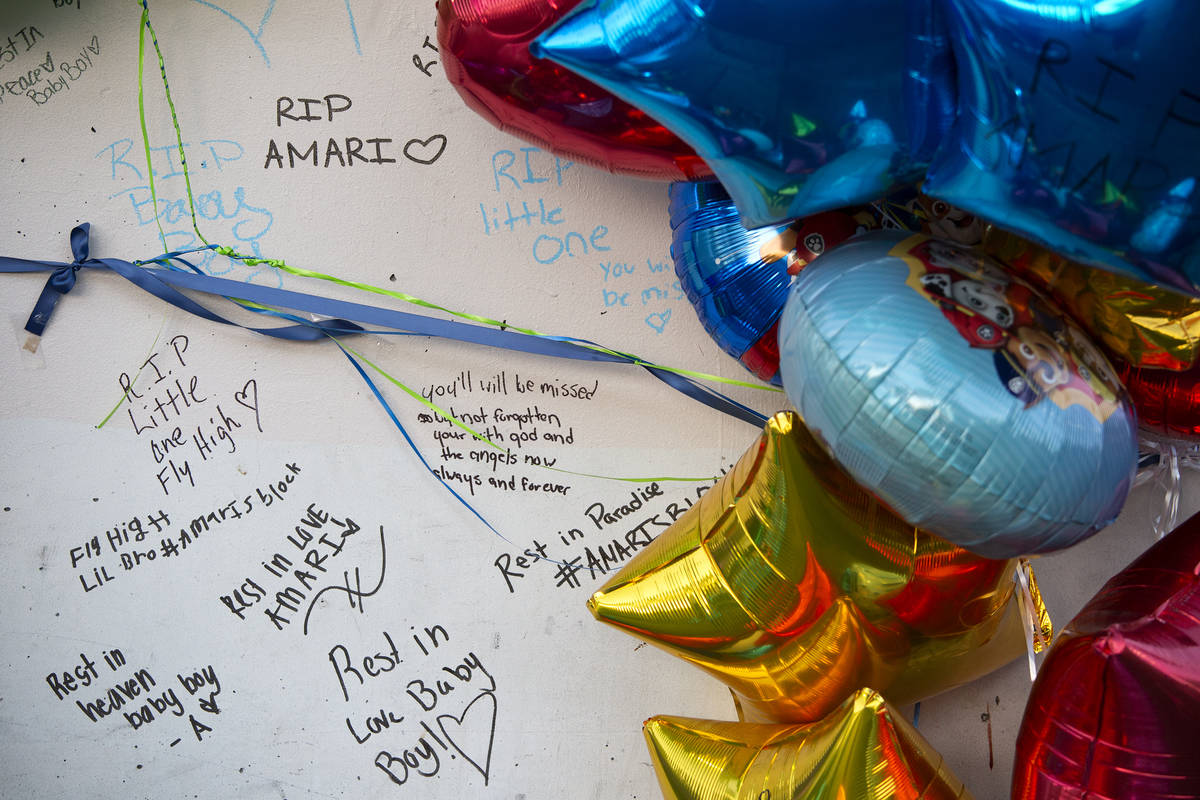 Peace
Baby Boy
RIP
AMARI
R.I.P
Baby
Boy
RIP
little
one
you
be
R.I.P
Little
one
Fly High
you'll will be missed
but not forgotten
your with god and
the angels now
always and forever
Fly Hight
Lil Bro #Amaris block
Rest in Love
AMARI
Rest in Paradise
Rest in
heaven
baby boy
- A
Rest in
Love Baby
Boy!
RIP
AMAR